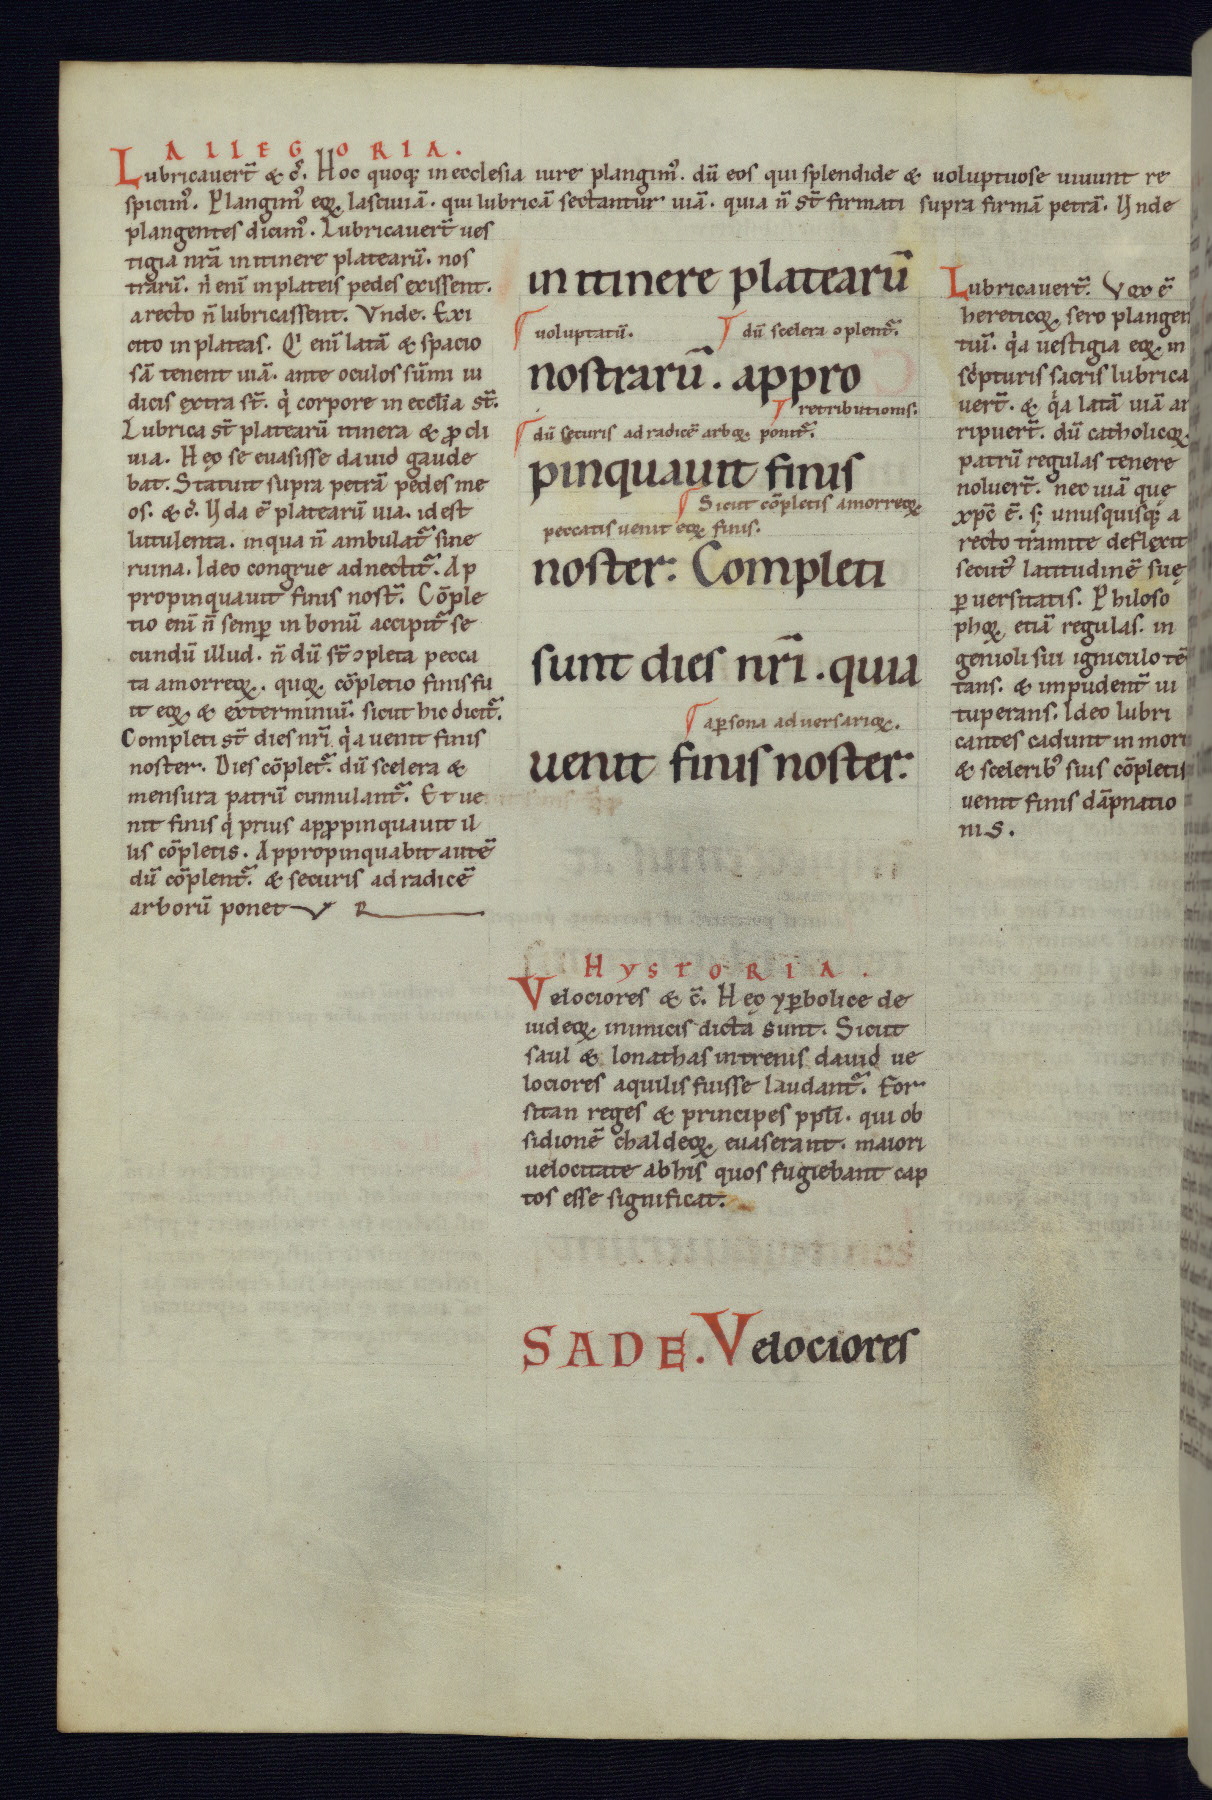 ALLEGORIA.
Lubricauert̃ & c̃. Hoc quoq; in ecclesia iure plangim᾽. dũ eos qui splendide & uoluptuose uiuunt re
spicim᾽. Plangim᾽ eoꝝ lasciuiã. qui lubricã sectantur uiã. quia ñ st̃ firmati supra firmã petrã. Vnde
plangentes dicim᾽. Lubricauert̃ ues
tigia nr̃a in itinere plateaɤ̃. nos
trarũ. ñ eni᷑ in plateis pedes exissent.
a recto ñ lubricassent. Vnde. Exi
cito in plateas. Q' eni᷑ latã & spacio
sã tenent uiã. ante oculos sũmi iu
dicis extra st̃. q̇ corpore in eccl̃ia st̃.
Lubrica st̃ platearũ itinera & ꝓcli
uia. Hęc se euasisse dauid gaude
bat. Statuit supra petrã pedes me
os. & c̃. Vda ẽ platearũ uia. id est
lutulenta. in qua ñ ambulat᷑ sine
ruina. Ideo congrue adnectit᷑. Ap
propinquauit finis nost᷑. Cõple
tio eni᷑ ñ semp̲ in bonũ accipit᷑ se
cundũ illud. ñ dũ st̃ ꝯpleta pecca
ta amorreoꝝ. quoꝝ cõpletio finis fu
it eoꝝ & exterminiũ. sicut hic dicit᷑.
Completi st̃ dies nr̃i q̇a uenit finis
noster. Dies cõplet᷑. dũ scelera &
mensura patrũ cumulant᷑. Et ue
nit finis q̇ prius apꝓpinquauit il
lis cõpletis. Appropinquabit autẽ
dũ cõplent᷑. & securis ad radicẽ
arborũ ponet V R
in itinere platearũ
uoluptatũ. dũ scelera ꝯplent᷑.
nostrarũ. appro
retributionis.
dũ securis ad radicẽ arboꝝ ponit᷑.
pinquauit finis
Sicut cõpletis amorreoꝝ
peccatis uenit eoꝝ finis.
noster: Completi
sunt dies nr̃i. quia
a p̲sona aduersarioꝝ.
uenit finis noster:
Lubricauert̃. Vox ẽ
hereticoꝝ sero plangen
tiũ. q̇a uestigia eoꝝ in
sc̀pturis sacris lubrica
uert̃. & q̇a latã uiã ar
ripuert̃. dũ catholicoꝝ
patrũ regulas tenere
noluert̃. nec uiã que
xp̃c ẽ. s; unusquisq; a
recto tramite deflexit
secut᾽ latitudinẽ suę
p̲uersitatis. Philoso
phoꝝ etiã regulas. in
genioli sui igniculo tẽ
tans. & impudent᷑ ui
tuperans. Ideo lubri
cantes cadunt in mort
& scelerib᾽ suis cõpletis
uenit finis dãpnatio
nis.
HYSTORIA.
Velociores & c̃. Hęc yp̲bolice de
iudeoꝝ inimicis dicta sunt. Sicut
saul & Ionathas in trenis dauid ue
lociores aquilis fuisse laudant᷑. For
sitan reges & principes pp̃li. qui ob
sidionẽ chaldeoꝝ euaserant. maiori
uelocitate ab his quos fugiebant cap
tos esse significat.
SADE. Velociores